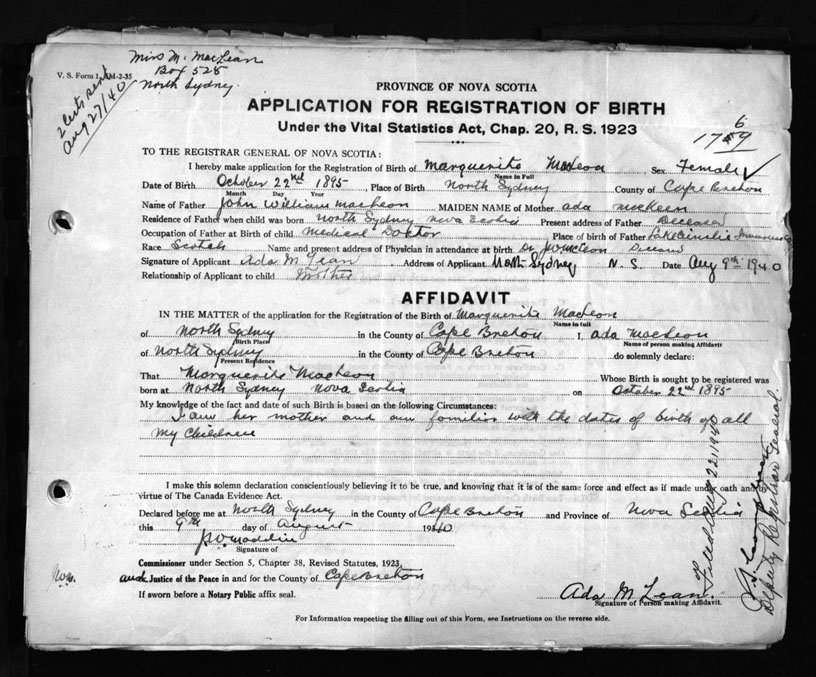 Miss M. MacLean
Box 528
North Sydney
V. S. Form 1, 1M-2-35
2 Certs sent
Aug 27/40
PROVINCE OF NOVA SCOTIA
APPLICATION FOR REGISTRATION OF BIRTH
Under the Vital Statistics Act, Chap. 20, R. S. 1923
6
1759
TO THE REGISTRAR GENERAL OF NOVA SCOTIA:
I hereby make application for the Registration of Birth of Marguerite MacLean Sex Female
Name in Full
Date of Birth October 22nd 1895, Place of Birth North Sydney County of Cape Breton
Month Day Year
Name of Father John William MacLean MAIDEN NAME of Mother Ada McKeen
Residence of Father when child was born North Sydney Nova Scotia Present address of Father Deceased
Occupation of Father at Birth of child Medical Doctor Place of birth of Father Lake Ainslie
Race Scotch Name and present address of Physician in attendance at birth Dr
Signature of Applicant Ada M Lean Address of Applicant North Sydney N. S. Date Aug 9th 1940
Relationship of Applicant to child Mother
AFFIDAVIT
IN THE MATTER of the application for the Registration of the Birth of Marguerite MacLean
Name in full
of North Sydney in the County of Cape Breton I, Ada MacLean
Birth Place Name of person making Affidavit
of North Sydney in the County of Cape Breton do solemnly declare:
Present Residence
That Marguerite MacLean Whose Birth is sought to be registered was
born at North Sydney Nova Scotia on October 22nd 1895
My knowledge of the fact and date of such Birth is based on the following Circumstances:
I am her mother and am familiar with the dates of birth of all
my children
I make this solemn declaration conscientiously believing it to be true, and knowing that it is of the same force and effect as if made under oath and by
virtue of The Canada Evidence Act.
Declared before me at North Sydney in the County of Cape Breton and Province of Nova Scotia
this 9th day of August 1940
Signature of
Commissioner under Section 5, Chapter 38, Revised Statutes, 1923,
and Justice of the Peace in and for the County of Cape Breton
If sworn before a Notary Public affix seal.
Ada M Lean
Signature of Person making Affidavit.
For Information respecting the filling out of this Form, see Instructions on the reverse side.
Filed Aug 22, 1940
Deputy Registrar General.